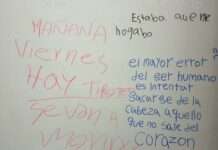 MAÑANA
Viernes
HAY TIROTEO
Se VAN A
MORIR
Estaba que me
hogaba
el mayor error
del ser humano
es intentar
sacarse de la
cabeza aquello
que no sale del
corazon